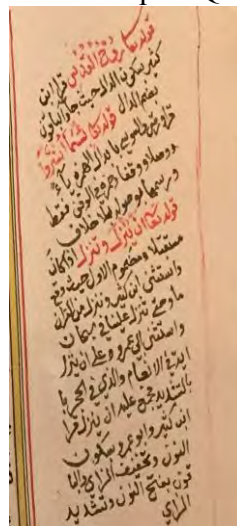 قوله تعالى روح القدس قرأ ابن
كثير بسكون الدال حيث جاء والباقون
بضم الدال قوله تعالى بئسما اشتروا
قرأ ورش والسوسي بابدال الهمزة ياء
وصلا ووقفا وحمزة في الوقف فقط
ورسمها موصولة بلا خلاف
قوله تعالى ان ينزل وتنزل اذا كان
مستقبلا ومضموم الاول حيث وقع
واستثنى ابن كثير وننزل من القران
وحتى تنزل علينا في سبحان
واستثنى ابو عمرو على ان ينزل
اية في الانعام والذي في الحجر
بالتشديد مجمع عليه ان ينزل قرأ
ابن كثير وابو عمرو بسكون
النون وتخفيف الزاي والبا
قون بفتح النون وتشديد
الزاي